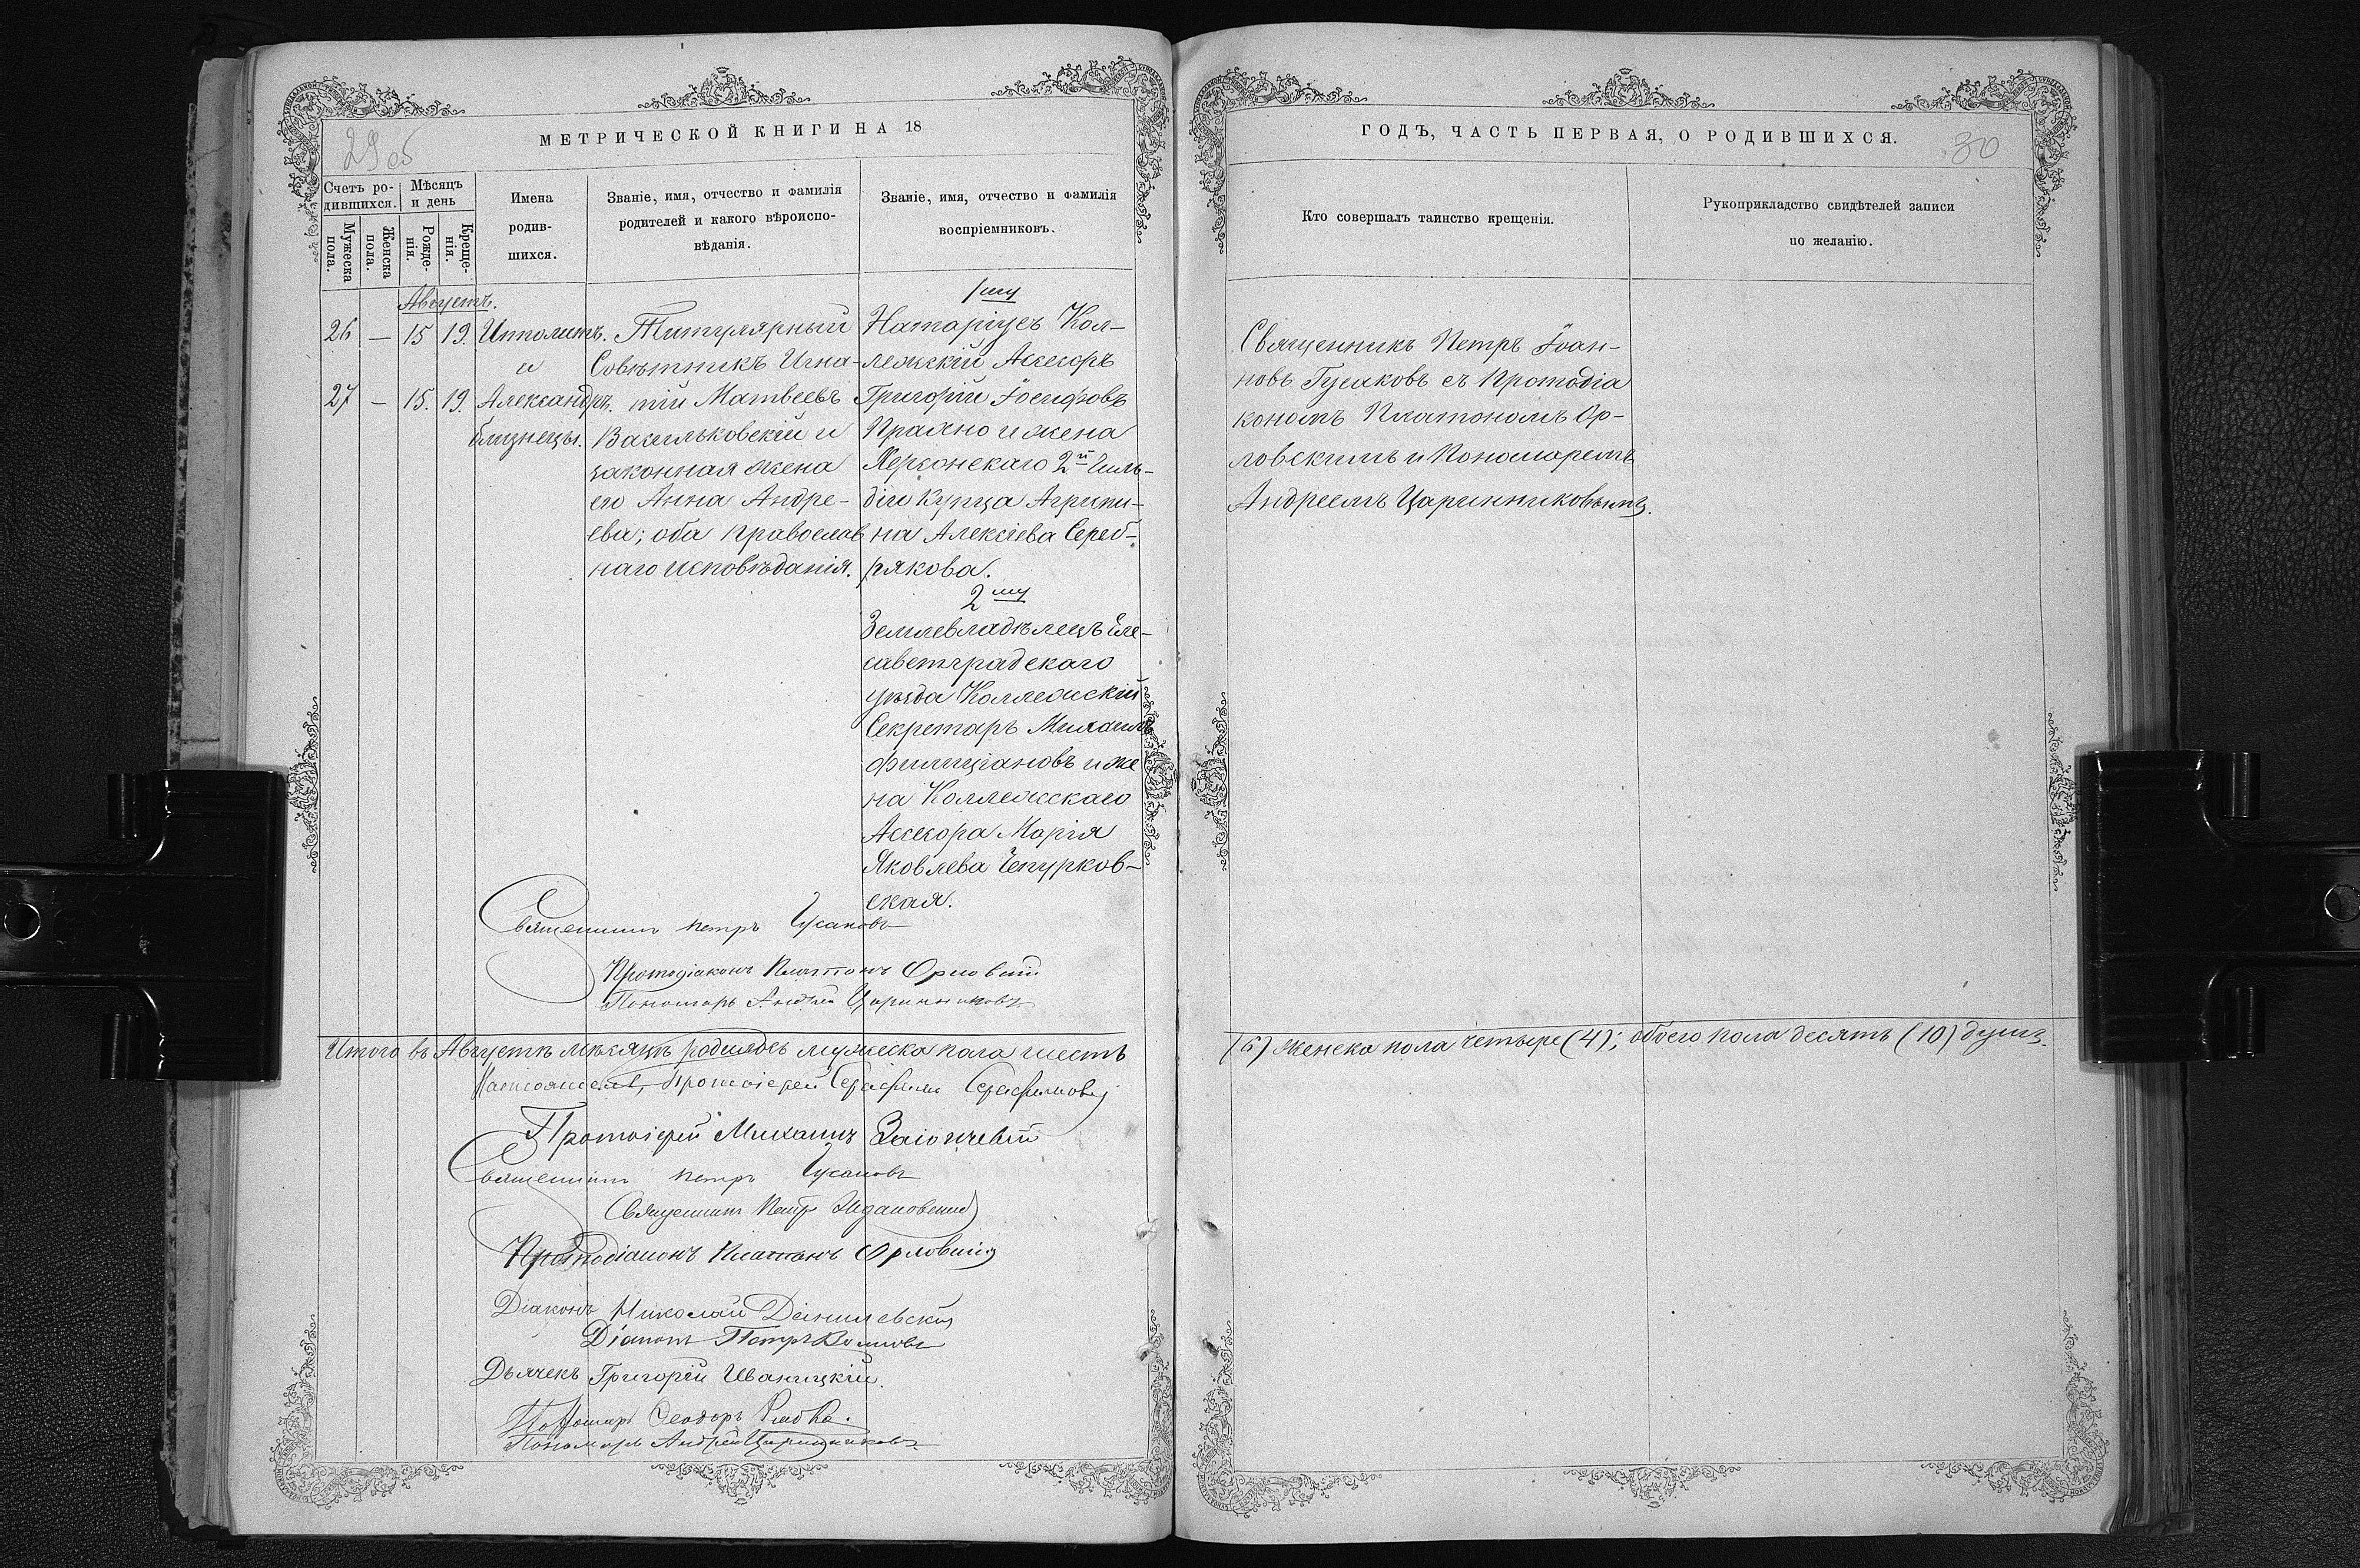 29 об
МЕТРИЧЕСКОЙ КНИГИ НА 18
Счетъ ро-
дившихся.
Мѣсяцъ
и день
Мужеска
пола.
Женска
пола.
Рожде-
нія.
Креще-
нія.
Имена
родив-
шихся.
Званіе, имя, отчество и фамилія
родителей и какого вѣроиспо-
вѣданія.
Званіе, имя, отчество и фамилія
воспріемниковъ.
Августъ.
26 — 15 19. Ипполитъ.
и
27 — 15. 19. Александръ.
близнецы.
Титулярный
Совѣтникъ Игна-
тій Матвеевъ
Васильковскій и
законная жена
его Анна Андре-
ева; оба православ
наго исповѣданія.
1му
Натаріусъ Кол-
лежскій Ассесоръ
Григорій Іосифовъ
Праяно и жена
Херсонскаго 2й Гиль-
діи Купца Агрипи-
на Алексіева Сереб-
рякова.
2му
Землевладѣлецъ Еле-
саветградскаго
уѣзда Коллежскій
Секретарь Михаилъ
Филиціановъ и же
на Коллежскаго
Ассесора Марія
Яковлева Чепурков-
ская.
Священникъ Петръ Гусаковъ
Протодіаконъ Платонъ Орловскій
Пономарь Андрей Царинниковъ
Итого въ Августѣ мѣсяцѣ родилось мужеска пола шесть
Настоятель, Протоіерей Серафимъ Серафимовъ
Протоіерей Михаилъ
Священникъ Петръ Гусаковъ
Священникъ Петръ
Протодіаконъ Платонъ Орловскій
Діаконъ Николай Данилевскій
Діаконъ Петръ
Дьячекъ Григорій Иваницкій.
Пономарь Ѳеодоръ
Пономарь Андрей Царинниковъ
ГОДЪ, ЧАСТЬ ПЕРВАЯ, О РОДИВШИХСЯ.
30
Кто совершалъ таинство крещенія.
Рукоприкладство свидѣтелей записи
по желанію.
Священникъ Петръ Іоан-
новъ Гусаковъ съ Протодіа
кономъ Платономъ Ор-
ловскимъ и Пономаремъ
Андреемъ Царинниковымъ.
(6) женска пола четыре (4); обоего пола десять (10) душъ.